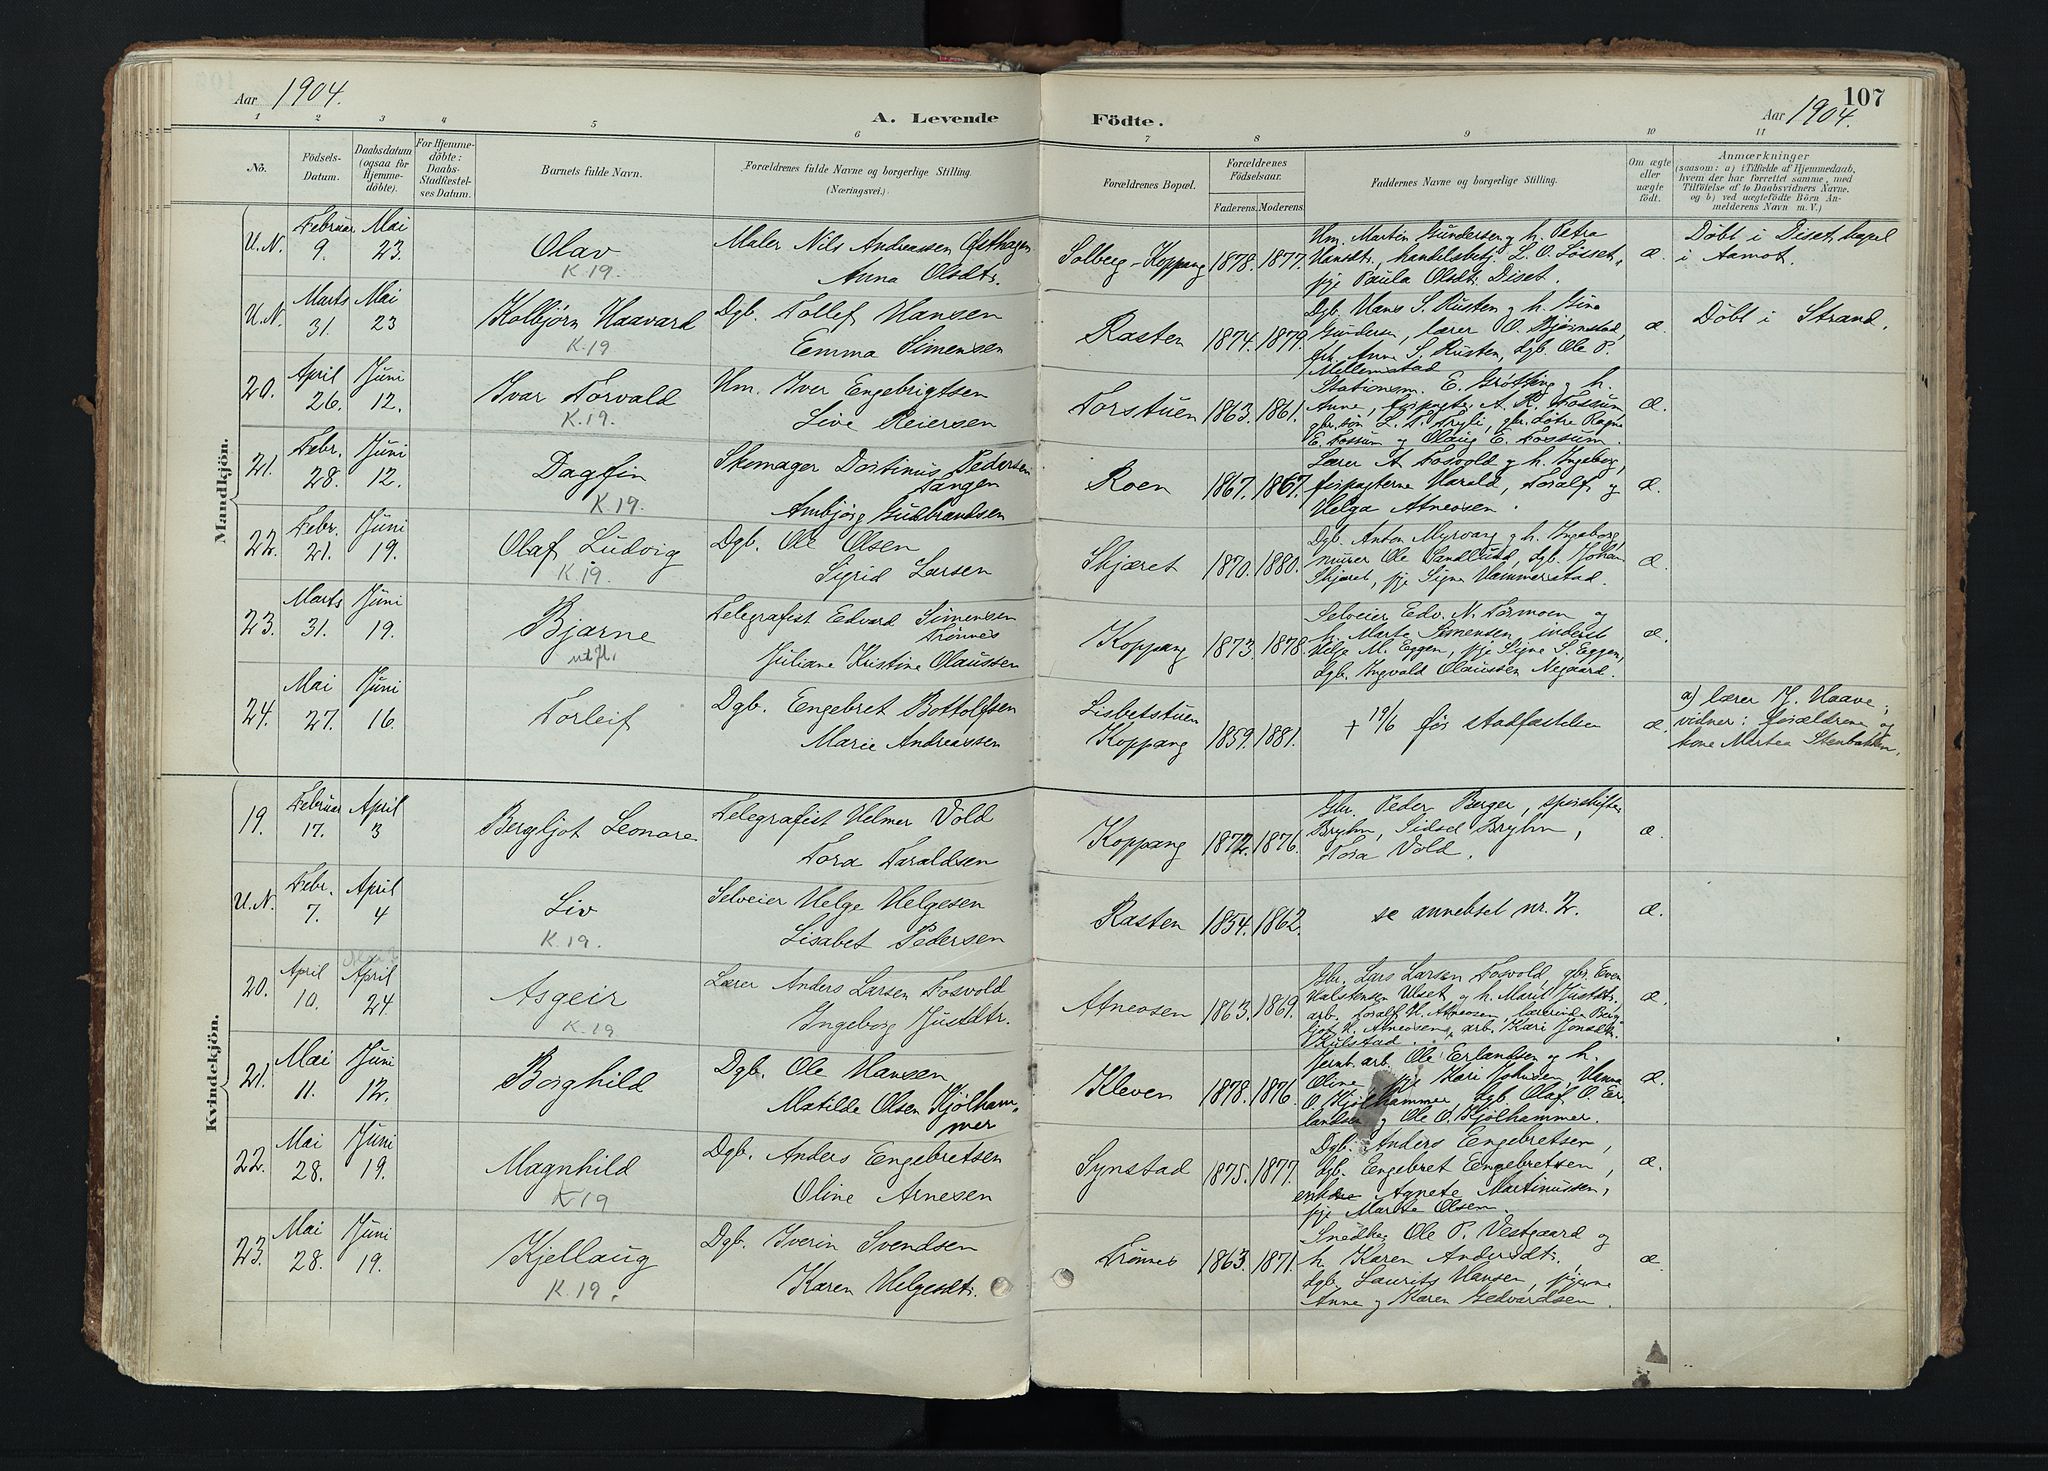 Aar 1904.
A. Levende Födte.
Aar 1904.
107
1 2 3 4 5 6 7 8 9 10 11
No.
Födsels-Datum.
Daabsdatum (ogsaa for Hjemmedöbte).
For Hjemmedöbte: Daabs-Stadfæstelses Datum.
Barnets fulde Navn.
Forældrenes fulde Navne og borgerlige Stilling. (Næringsvei.)
Forældrenes Bopæl.
Forældrenes Födselsaar.
Faderens. Moderens.
Faddernes Navne og borgerlige Stilling.
Om ægte eller uægte födt.
Anmærkninger
(saasom: a) i Tilfælde af Hjemmedaab, hvem der har forrettet samme, med Tilföielse af to Daabsvidners Navne. og b) ved uægtefödte Börn Anmelderens Navn m. V.)
Mandkjön.
U.N. Februar 9. Mai 23. Olav K.19. Maler Nils Andreassen Østhagen
Anna Olsdtr. Solberg-Koppang 1878. 1877. Um. Martin Gundersen og h. Petra
Hansdtr., handelsbetj. L. O. Løset,
pje Paula Olsdtr. Diset. æ. Döbt i Diset kapel
i Aamot.
U.N. Marts 31 Mai 23 Kolbjørn Haavard K.19 Dgb. Tollef Hansen
Emma Simensen Rasten 1874. 1879. Dgb. Hans S. Rusten og h. Gine
Gundersen, lærer O. Bjørnstad,
Anne S. Rusten, dgb. Ole P.
Millemstad æ. Döbt i Strand.
20. April 26. Juni 12. Ivar Torvald K.19. Um. Iver Engebrigtsen
Live Reiersen Torstuen 1863. 1861. Stationsm. E. Grøtting og h.
Anne, forpagter A. R. Fossum,
gbr. søn L. T. Tryli, gbr. døtre Ragna
E. Fossum og Olaug E. Fossum. æ.
21. Febr. 28. Juni 12. Dagfin K.19. Skomager Dortinus Pedersen
Tangen
Ambjørg Gudbrandsen Roen 1867. 1867. Lærer A Fosvold og h. Ingeborg,
forpagterne Harald, Toralf og
Helga Atneosen. æ.
22. Febr. 21. Juni 19. Olaf Ludvig K.19. Dgb. Ole Olsen
Sigrid Larsen Skjæret 1870. 1880. Dgb. Anton Myrvang og h. Ingeborg,
murer Ole Sandlund, dgb. Johan
Skjæret, pje Signe Hammerstad. æ.
23. Marts 31. Juni 19. Bjarne utfl. Telegrafist Edvard Simensen
Trønnes
Juliane Kristine Olaussen Koppang 1873. 1878. Selveier Edv. N. Tormoen og
h. Marte Simensen, inderst
Helje M. Eggen, pje Signe S. Eggen,
dgb. Ingvald Olaussen Negaard. æ.
24. Mai 27. Juni 16. Torleif Dgb. Engebret Bottolfsen
Marie Andreassen Lisbetstuen
Koppang 1859. 1881. + 19/6 før stadfæstelsen æ. a) lærer J. Haave;
vidner: forældrene og
kone Martea Stenbakken.
Kvindekjön.
19. Februar 17. April 3 Bergljot Leonore Telegrafist Helmer Vold
Tora Taraldsen Koppang 1872. 1876. Gbr. Peder Berger, sporskifter
Bryhn, Sidsel Bryhn,
Tora Vold. æ.
U.N. Febr. 7. April 4 Liv K.19. Selveier Helge Helgesen
Lisabet Pedersen Rasten 1854. 1862. se annetset nr. 2. æ.
20. April 10. April 24. Asgeir K.19 Lærer Anders Larsen Fosvold
Ingeborg Justdtr. Atneosen 1863. 1869. Gbr. Lars Larsen Fosvold, gbr. Even
Halstensen Ulset og h. Marit Justdtr.
arb. Toralf H. Atneosen, lærerinde Bergljot
H. Atneosen, arb. Kari Jonsdtr.
Kulstad. æ.
21. Mai 11. Juni 12. Borghild Dgb. Ole Hansen
Matilde Olsen Kjølhammer Kleven 1878. 1876. Jernb. arb. Ole Erlandsen og h.
Oline, pje Kari Johnsen, Hanna
O. Kjølhammer, dgb. Olaf O. Erlandsen
og Ole O. Kjølhammer. æ.
22. Mai 28. Juni 19. Magnhild K 19 Dgb. Anders Engebretsen
Oline Arnesen Synstad 1875. 1877. Dgb. Anders Engebretsen,
dgb. Engebret Engebretsen,
enke Agnete Martinussen,
pje Marte Olsen. æ.
23. Mai 28. Juni 19. Kjellaug K.19. Dgb. Iverin Svendsen
Karen Helgesdtr. Trønnes 1863. 1871. Snedker Ole P. Vestgaard og
h. Karen Andersdtr.,
dgb. Laurits Hansen, pigerne
Anne og Karen Gedvardsen. æ.